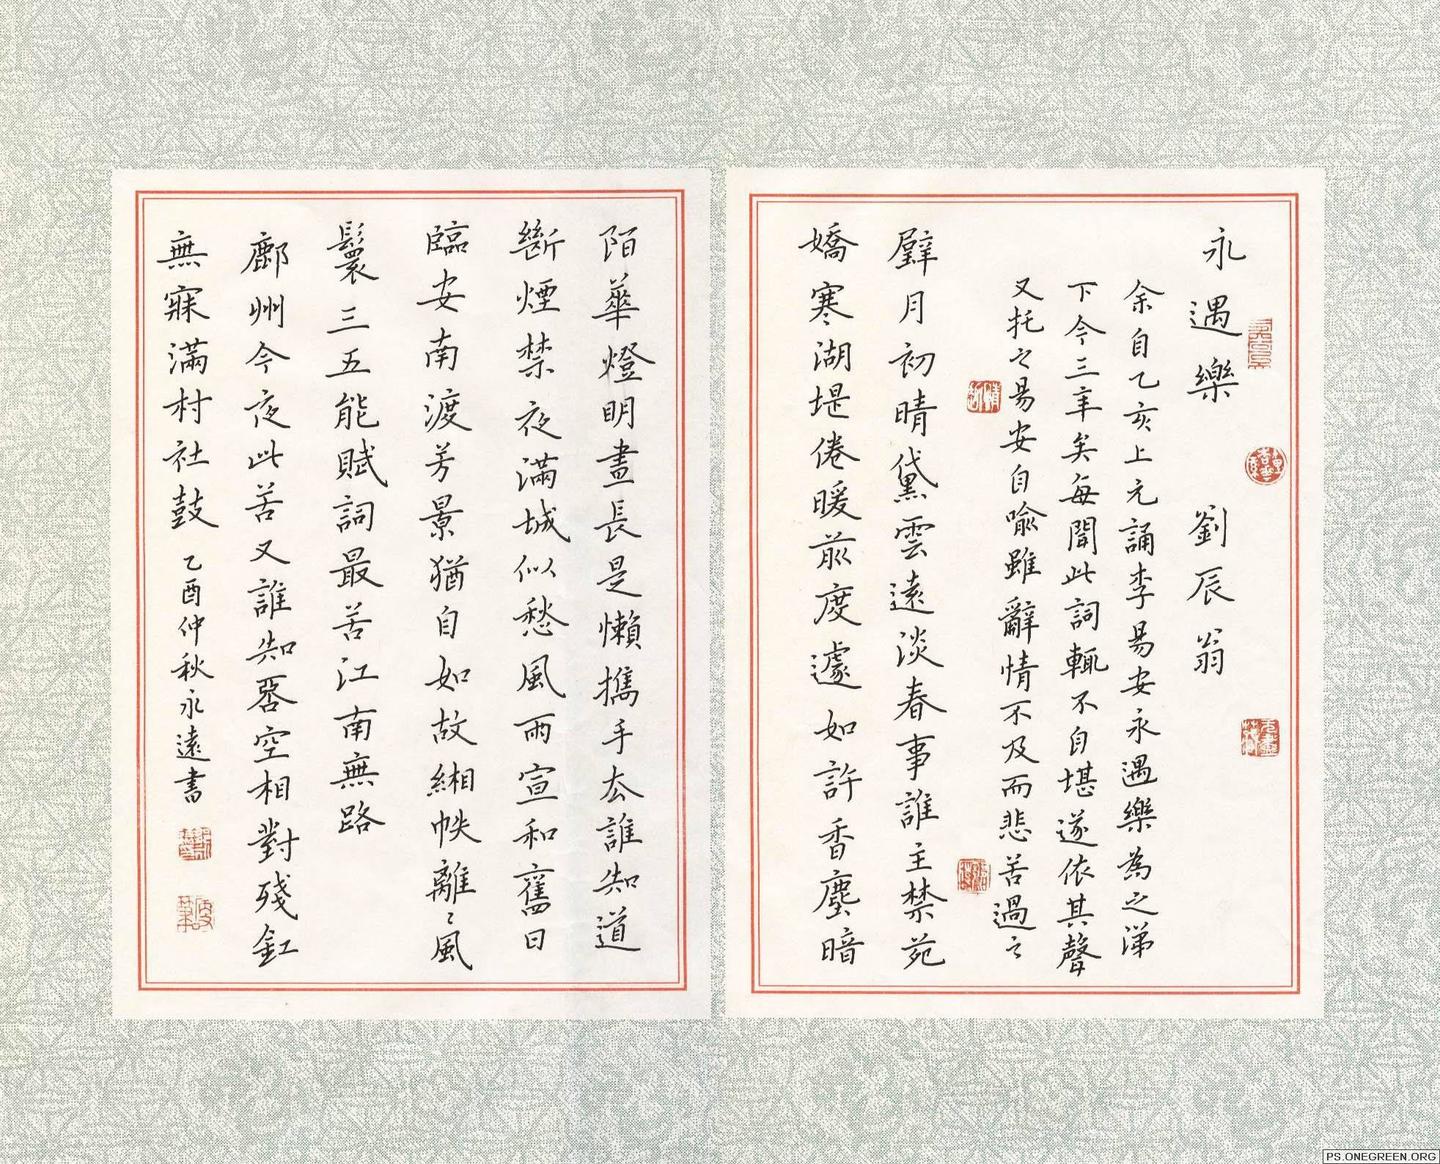 永遇樂 劉辰翁
余自乙亥上元誦李易安永遇樂為之涕
下今三年矣每聞此詞輒不自堪遂依其聲
又托之易安自喻雖辭情不及而悲苦過之
璧月初晴黛雲遠淡春事誰主禁苑
嬌寒湖堤倦暖前度遽如許香塵暗
陌華燈明晝長是懶攜手去誰知道
斷煙禁夜滿城似愁風雨宣和舊日
臨安南渡芳景猶自如故緗帙離〻風
鬟三五能賦詞最苦江南無路
鄜州今夜此苦又誰知否空相對殘釭
無寐滿村社鼓 乙酉仲秋永遠書
PS.ONEGREEN.ORG